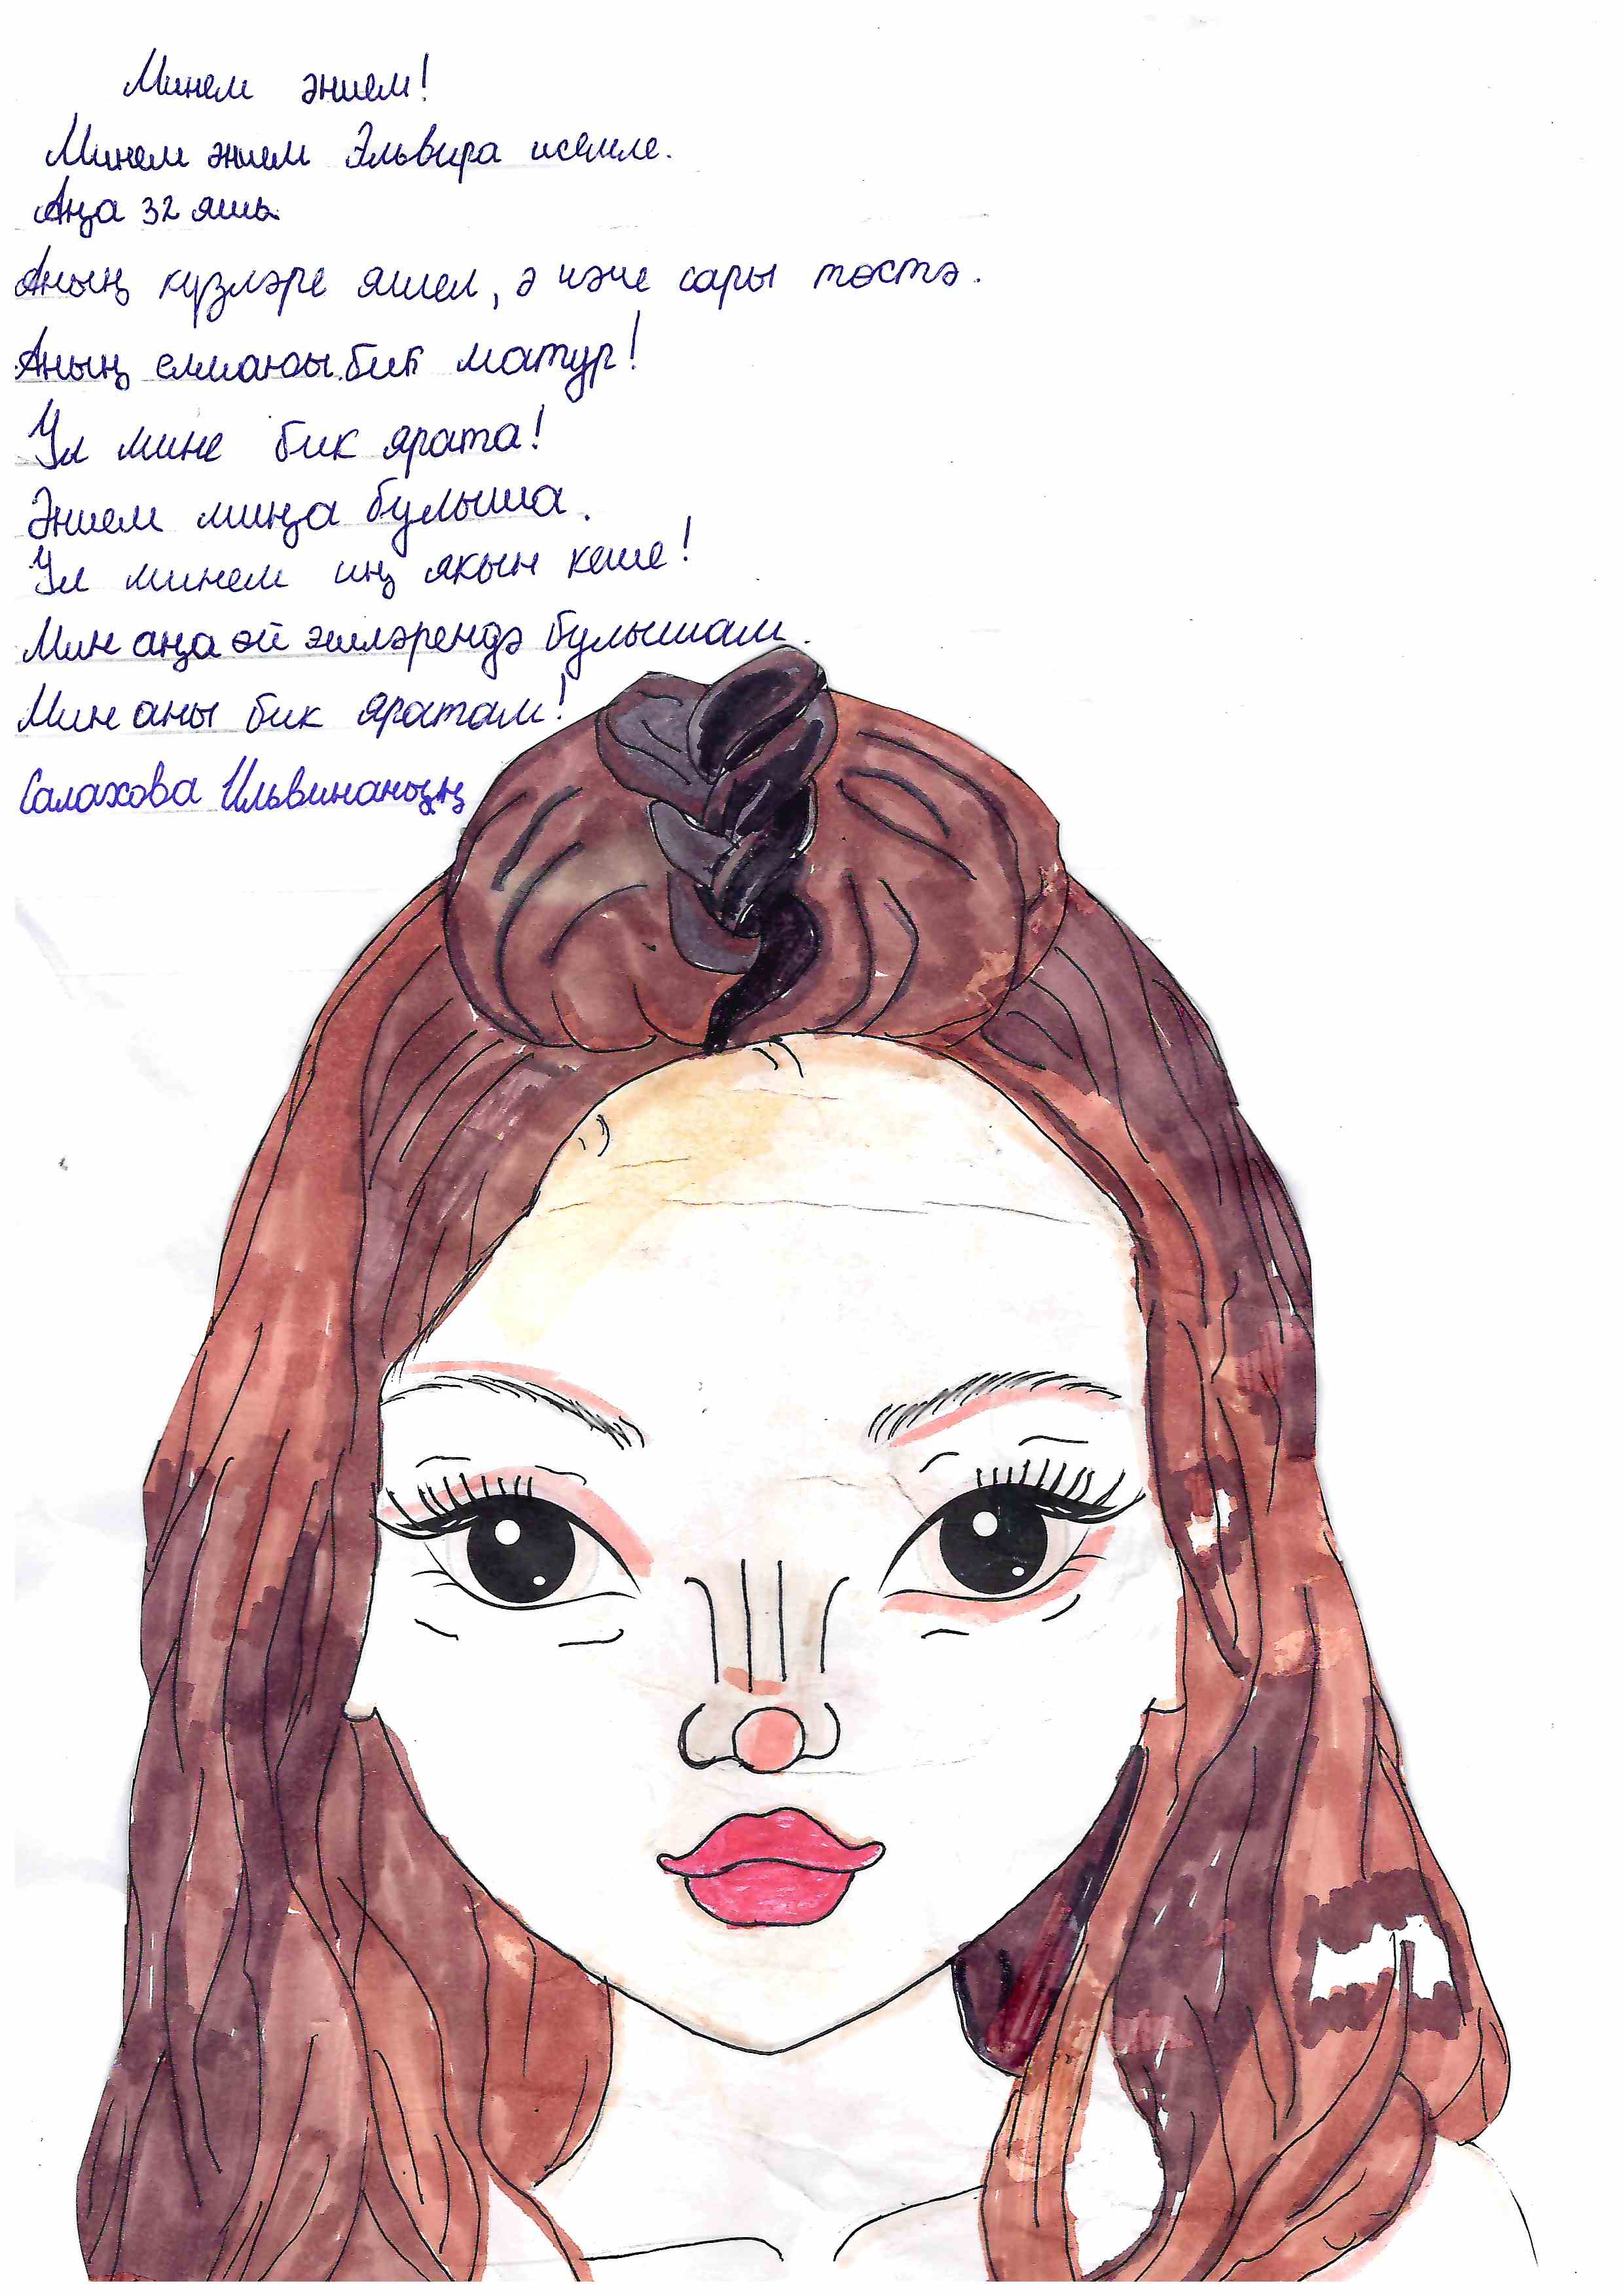 Минем әнием!
Минем әнием Эльвира исемле.
Аңа 32 яшь.
Аның күзләре яшел, ә чәче сары төстә.
Аның елмаюы бик матур!
Ул мине бик ярата!
Әнием миңа булыша.
Ул минем иң якын кеше!
Мин аңа өй эшләрендә булышам.
Мин аны бик яратам!
Салахова Ильвинаның